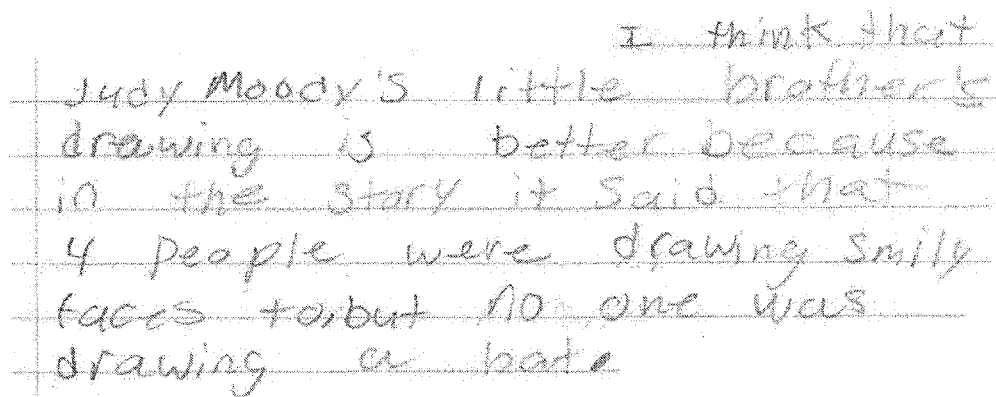 I think that
Judy Moody's little brother's
drawing is better because
in the story it said that
4 people were drawing smily
faces to,but no one was
drawing a bat.